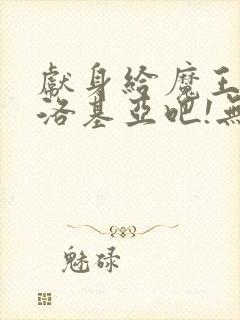 獻身給魔王
洛基亞吧!無
魅碌